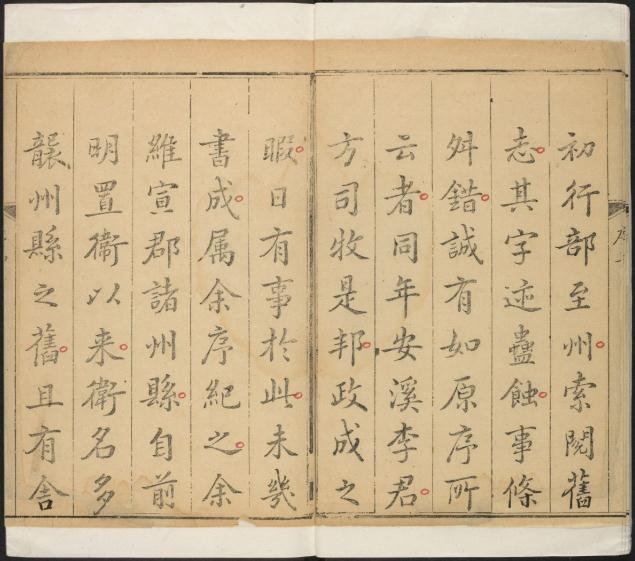 初行部至州索閱舊
志其字迹蠹蝕事條
舛錯誠有如原序所
云者同年安溪李君
方司牧是邦政成之
暇日有事於此未幾
書成属余序紀之余
維宣郡諸州縣自前
明置衛以来衛名多
襲州縣之舊且有舍